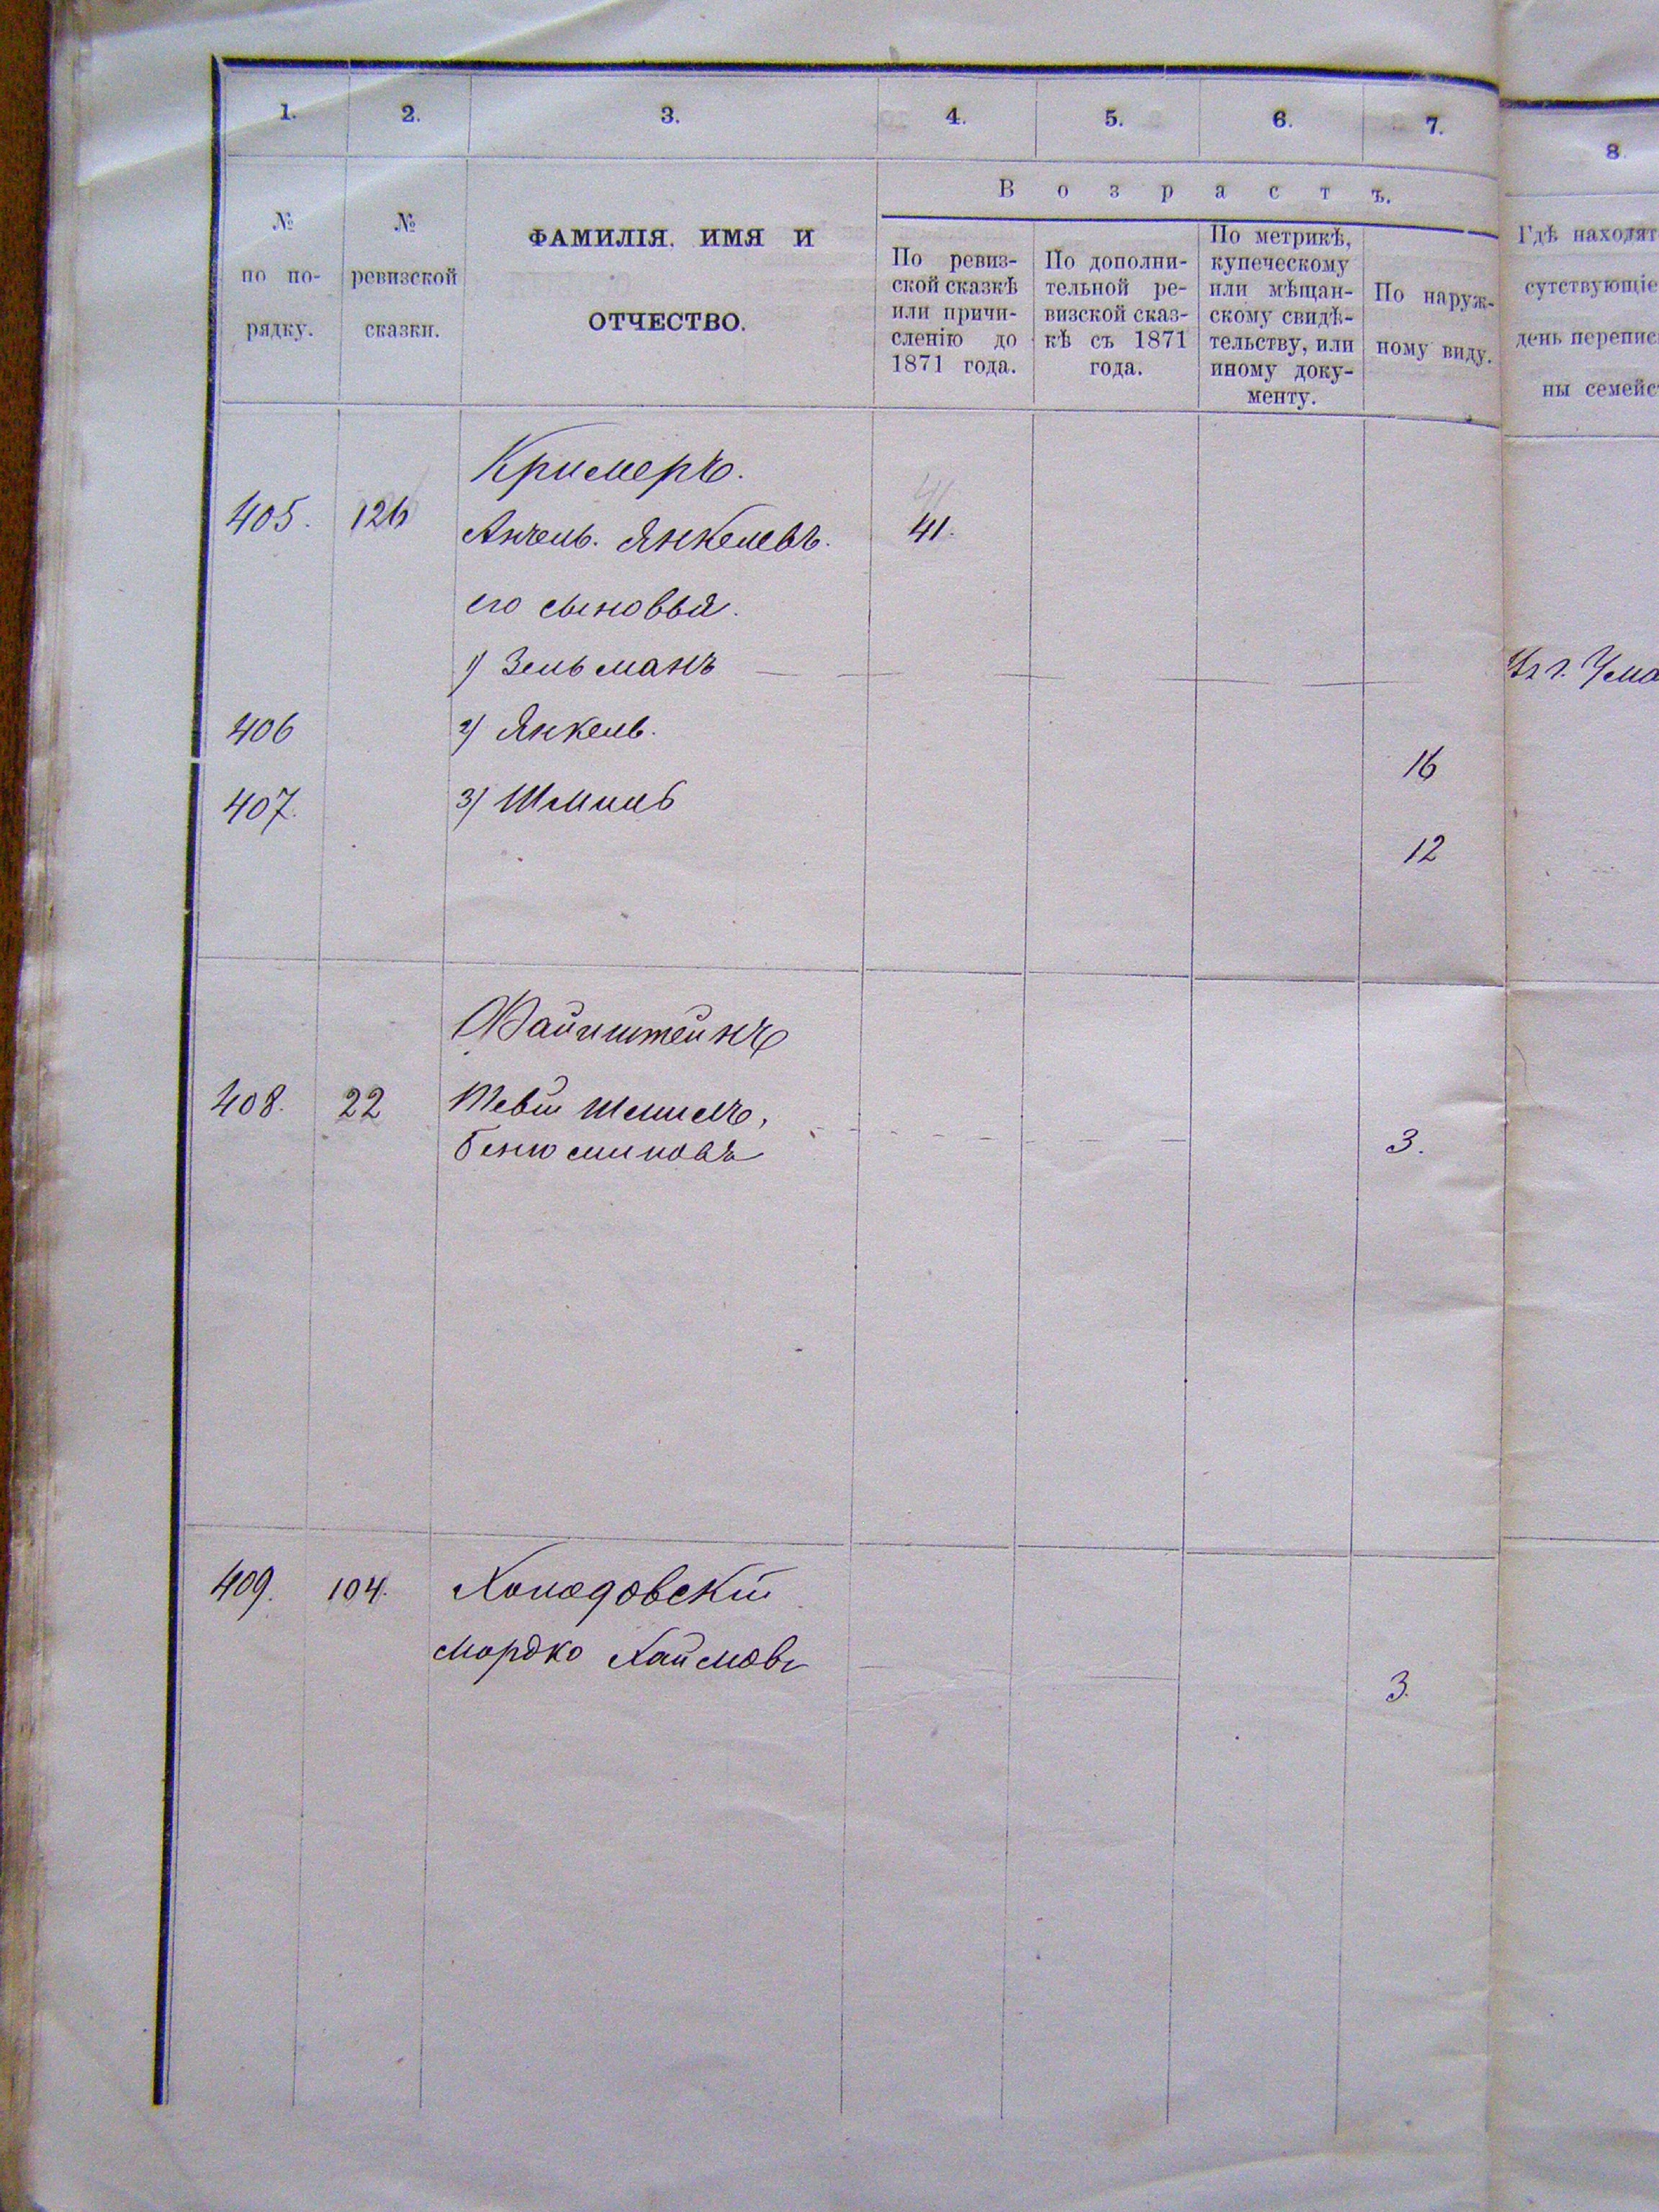 1. 2. 3. 4. 5. 6. 7.
8.
№ по по-рядку.
№ ревизской сказки.
ФАМИЛІЯ, ИМЯ И
ОТЧЕСТВО.
Возрастъ.
По ревиз-
ской сказкѣ
или причи-
сленію до
1871 года.
По дополни-
тельной ре-
визской сказ-
кѣ съ 1871
года.
По метрикѣ,
купеческому
или мѣщан-
скому свидѣ-
тельству, или
иному доку-
менту.
По наруж-
ному виду.
Гдѣ находят
сутствующіе
день перепис
ны семейс
Кримеръ.
405. 126 Анчель. Янкелевъ. 41.
его сыновья.
1) Зельманъ
Въ г. Ума
406 2) Янкель. 16
407. 3) Шмиль 12
Файнштейнъ
408. 22 Тевій Шмилъ,
Беньюминовъ 3.
409. 104. Холодовскій
Мордко Хаймовъ 3.